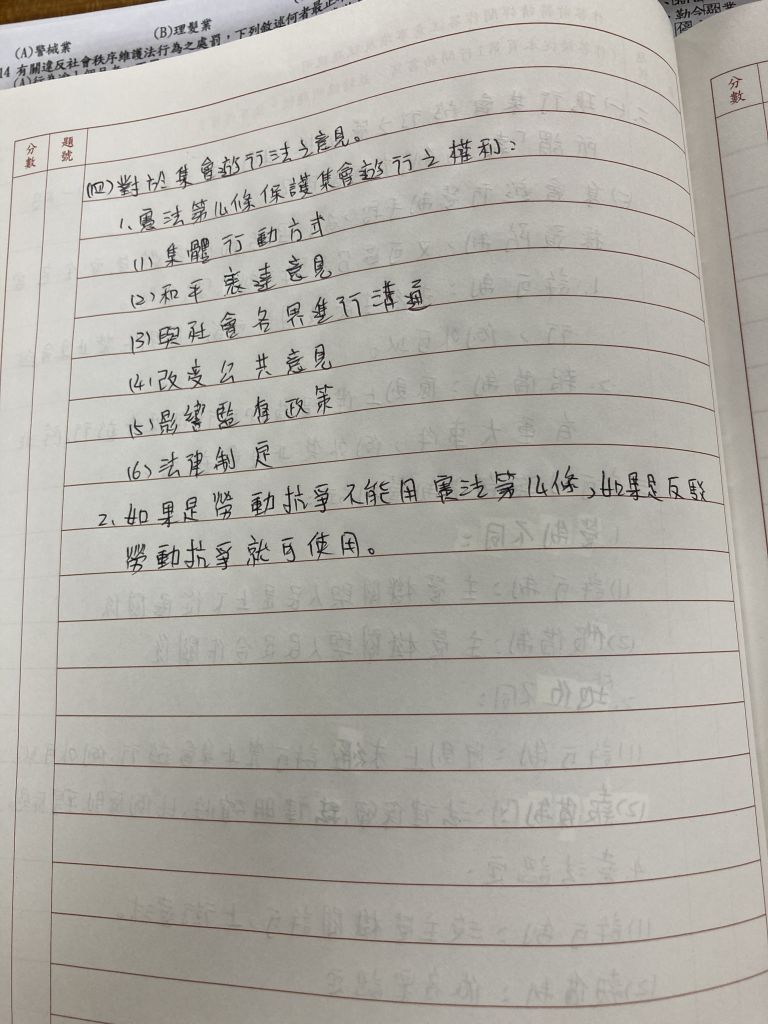 (A)警械業
(B)理髮業
14 有關違反社會秩序維護法行為之處罰，下列敘述何者最正
分數
題號
分數
(四)對於集會遊行法之意見。
1、憲法第14條保護集會遊行之權利：
(1)集體行動方式
(2)和平表達意見
(3)與社會各界進行溝通
(4)改变公共意見
(5)影響監督政策
(6)法律制定
2、如果是勞動抗爭不能用憲法第14條，如果是反駁
勞動抗爭就可使用。